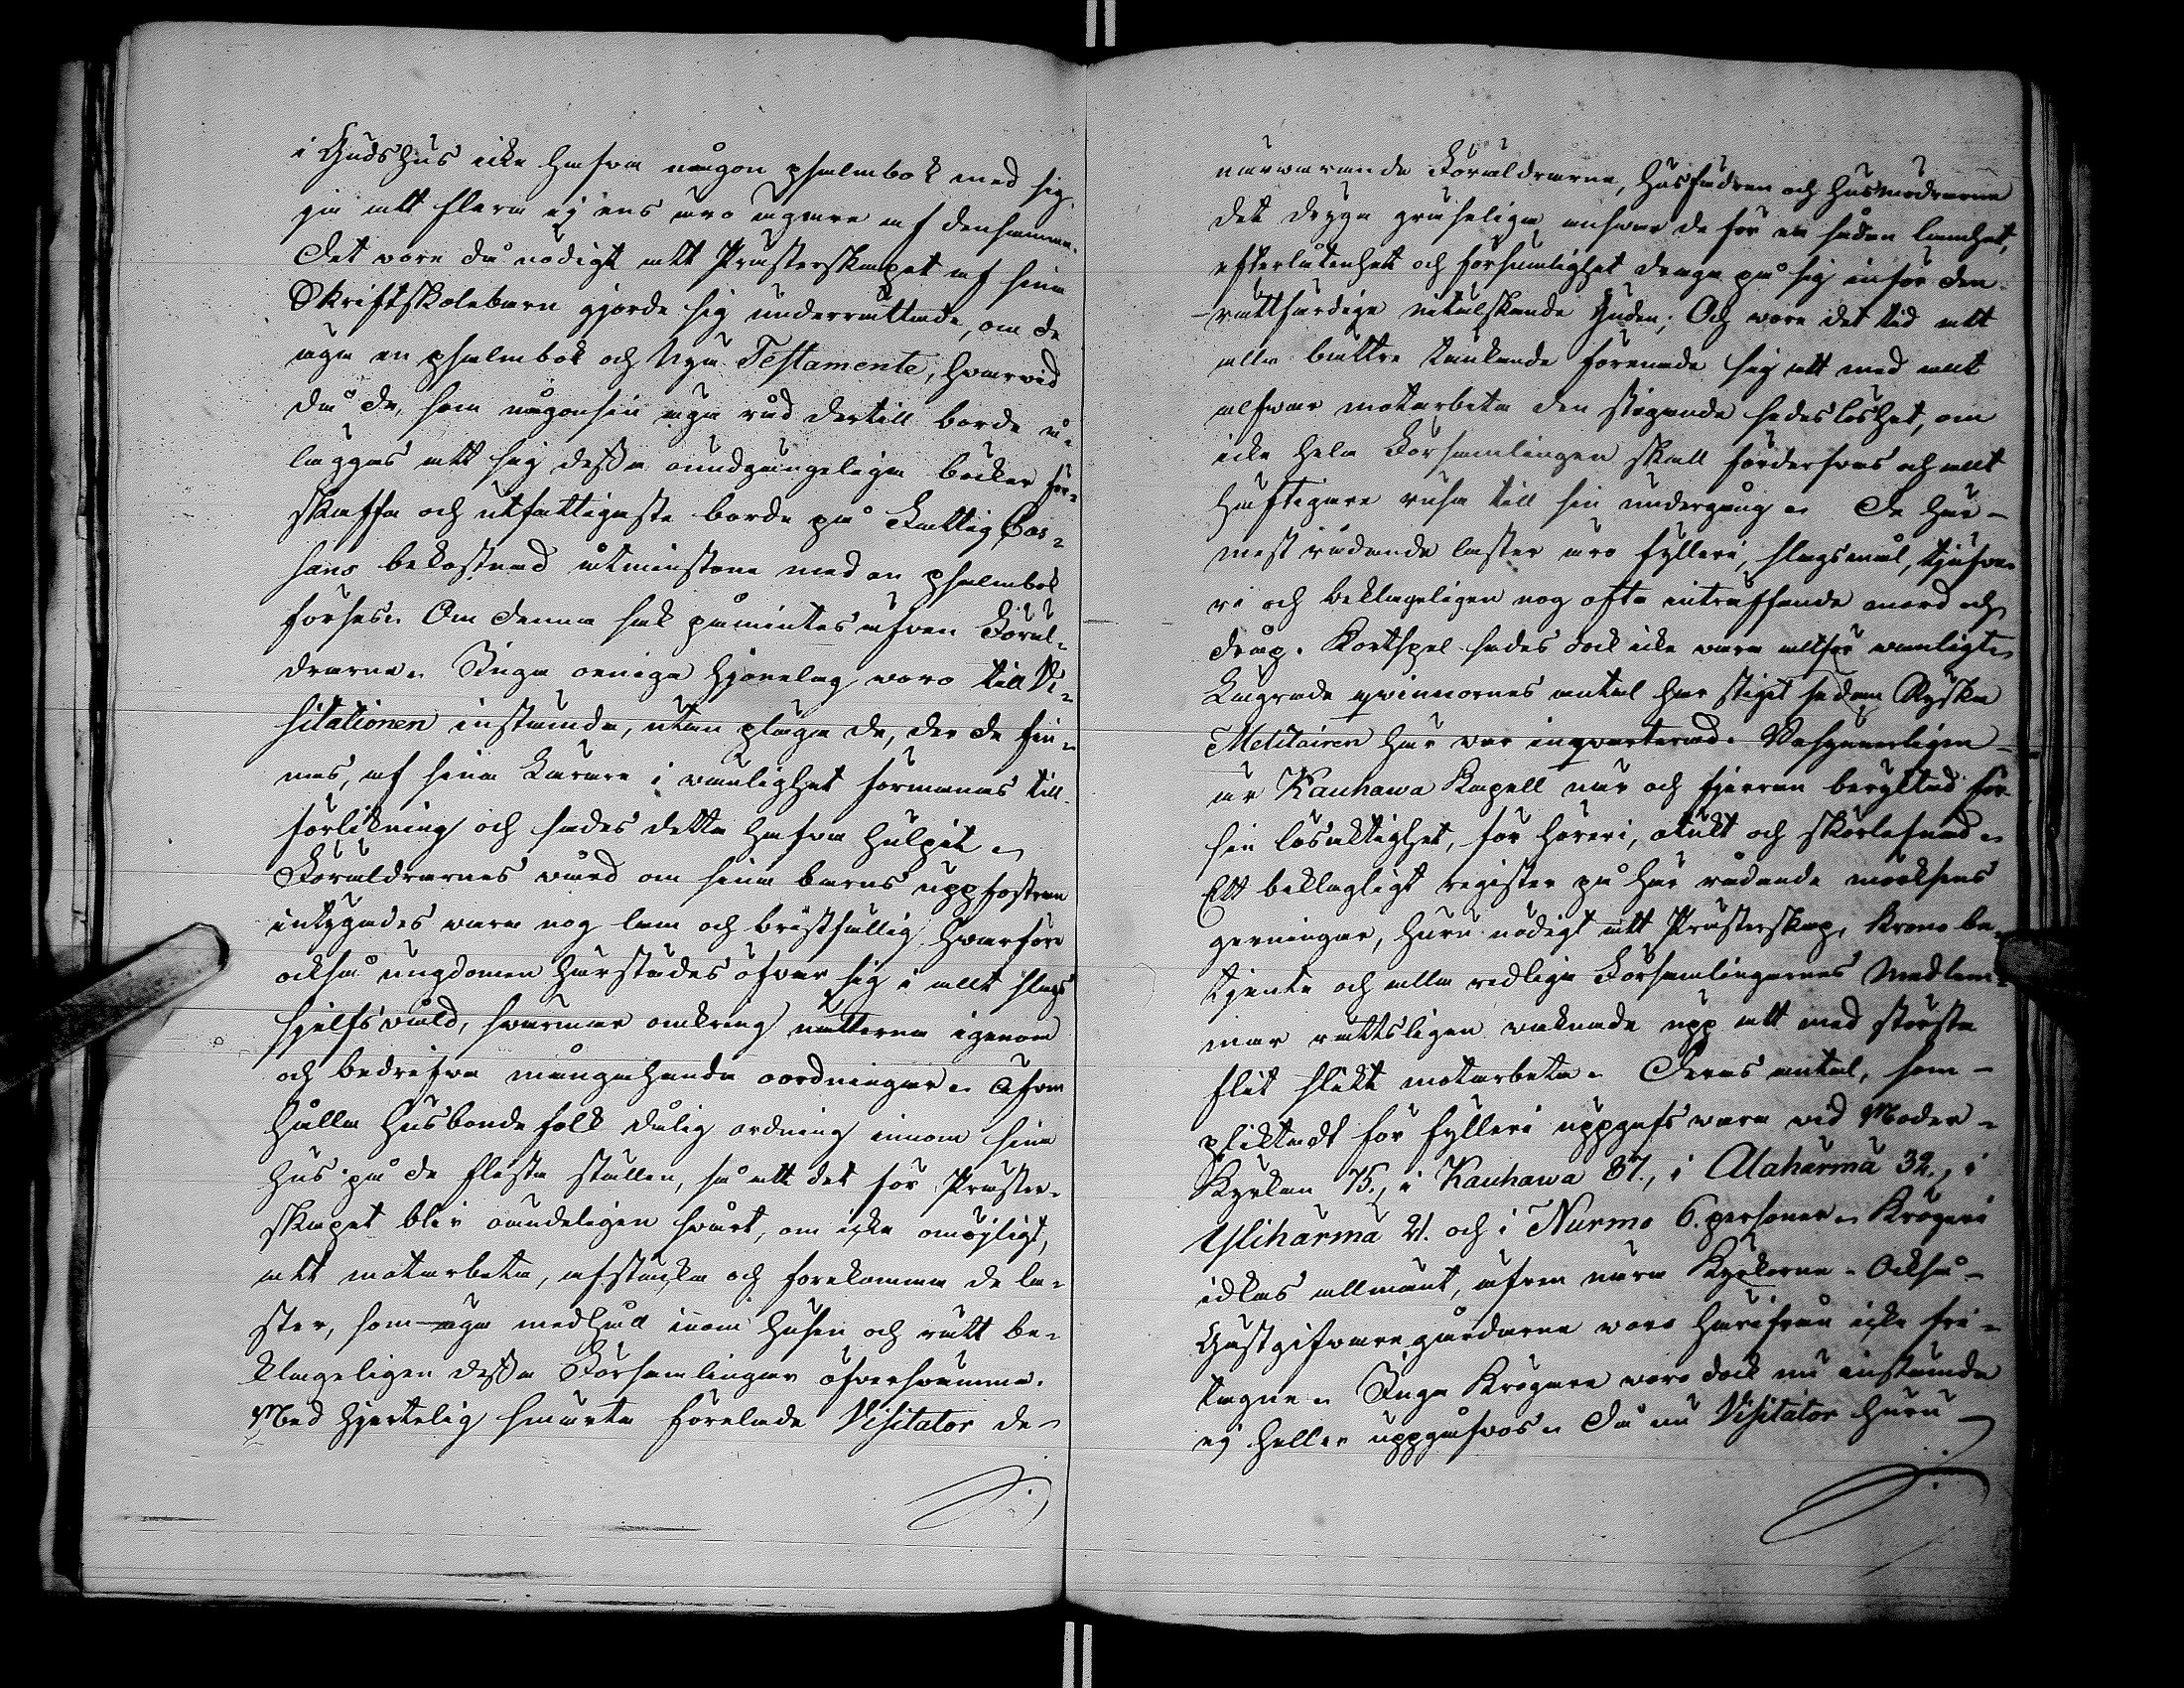 i Guds hus icke hafva någon psalmbok med sig,
ja att flera ej ens äro ägare af densamma.
Det vore då nödigt att Prästerskapet af sina
Skriftskolebarn gjorde sig underrättade, om de
äga en psalmbok och Nya Testamente, hvarvid
då de, som någonsin äga råd dertill borde å-
läggas att sig dessa oundgängeliga böcker för-
skaffa och utfattigaste borde på Fattig Cas-
sans bekostnad åtminstone med en psalmbok
förses. Om denna sak påmintes äfven Föräl-
drarne. Inga oeniga Hjonelag voro till Vi-
sitationen instämda, utan pläga de, der de fin-
nas, af sina Lärare i vänlighet förmanas till
förlikning och sades detta hafva hulpit.
Föräldrarnes vård om sina barns uppfostran
intygades vara nog lam och bristfällig, hvarföre
också ungdomen härstädes öfvar sig i allt slags
sjelfsvåld, svärmar omkring nätterna igenom
och bedrifva mångahanda oordningar. Äfven
hålla Husbonde folk dålig ordning innom sina
hus på de flesta ställen, så att det för Präster-
skapet blir oändeligen svårt, om icke omöjligt,
att motarbeta, afstänka och förekomma de la-
ster, som äga medhåll inom husen och rätt be-
klageligen dessa Församlingar öfversvämma.
Med hjertelig smärta förelade Visitator de
närvarande Föräldrarne, Husfädren och Husmödrarne
det dryga gruseliga ansvar de för en sådan lamhet,
efterlåtenhet och försumlighet draga på sig inför den
rättfärdige nitälskande Guden; Och vore det tid att
alla bättre tänkande förenade sig att med allt
alfvar motarbeta den stigande sedeslöshet, om
icke hela Församlingen skall förderfvas och allt
häftigare rusa till sin undergång. De här
mest rådande laster äro fylleri, slagsmål, tjufve-
ri och beklageligen nog ofta inträffande mord och
dråp. Kortspel sades dock icke vara alltför vanligt.
Lägrade qvinnornes antal har stigit sedan Ryska
Militairen här var inqvarterad. Besynnerligen
är Kauhawa Kapell när och fjerran beryktad för
sin lösaktighet, för horeri, otukt och skörlefnad.
Ett beklagligt register på här rådande mörksens
gerningar, huru nödigt att Prästerskap, Krono be-
tjente och alla redliga Församlingarnes Medlem-
mar rättsligen vaknade upp att med största
flit slikt motarbeta. Deras antal, som
pliktadt för fylleri uppgafs vara vid Moder-
Kyrkan 75, i Kauhawa 87, i Alahärmä 32, i
Ylihärmä 21. och i Nurmo 6. personer. Krögeri
idkas allmänt, äfven nära Kyrkorne. Också
Gästgifvare gårdarne voro härifrån icke fri-
tagne. Inga Krögare voro dock nu instämda
ej heller uppgåfvos. Då nu Visitator huru